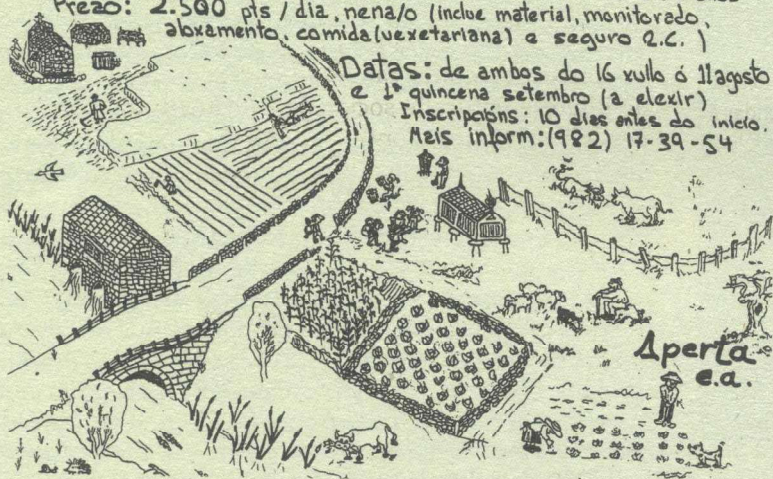 Prezo: 2.500 pts / dia, nena/o (inclue material, monitorado,
aloxamento, comida (vexetariana) e seguro R.C. )
Datas: de ambos do 16 xullo ó 11 agosto
e 1ª quincena setembro (a elexir)
Inscripcións: 10 dias antes do inicio.
Mais inform: (982) 17-39-54
Aperta
e.a.